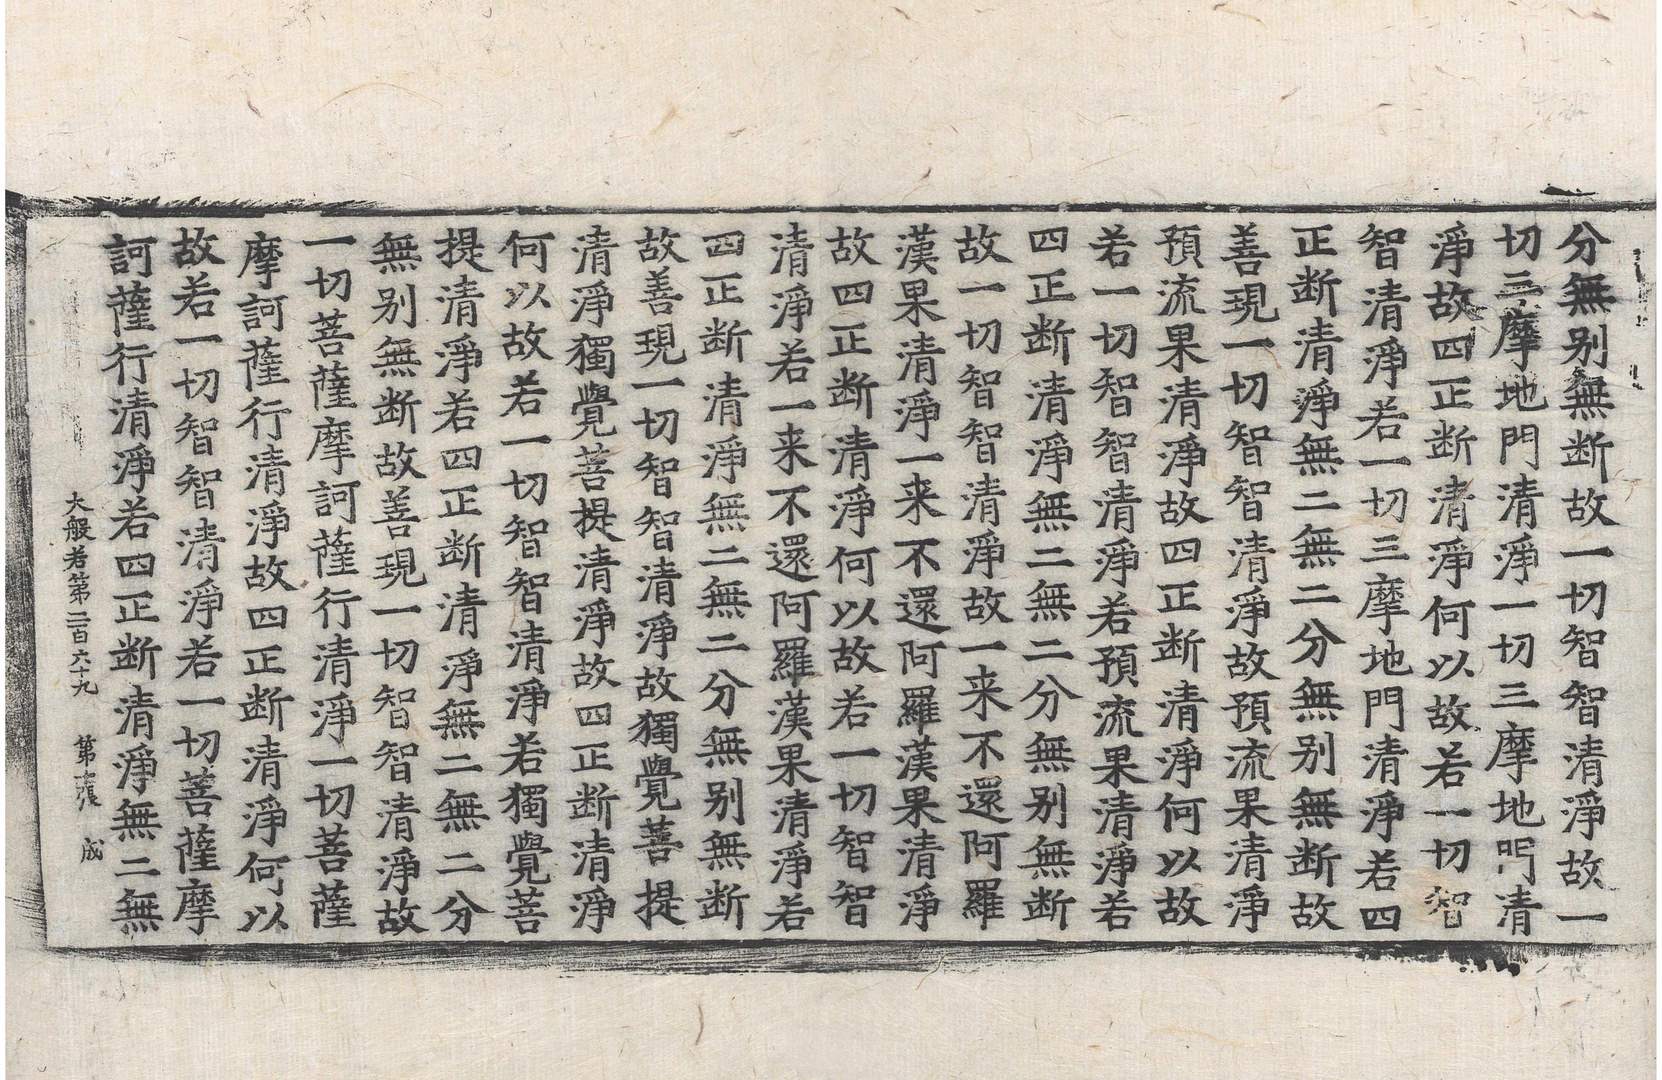 分無别無断故一切智智清淨故一
切三摩地門清淨一切三摩地門清
淨故四正断清淨何以故若一切智
智清淨若一切三摩地門清淨若四
正断清淨無二無二分無别無断故
善現一切智智清淨故預流果清淨
預流果清淨故四正断清淨何以故
若一切智智清淨若預流果清淨若
四正断清淨無二無二分無别無断
故一切智智清淨故一来不還阿羅
漢果清淨一来不還阿羅漢果清淨
故四正断清淨何以故若一切智智
清淨若一来不還阿羅漢果清淨若
四正断清淨無二無二分無别無断
故善現一切智智清淨故獨覺菩提
清淨獨覺菩提清淨故四正断清淨
何以故若一切智智清淨若獨覺菩
提清淨若四正断清淨無二無二分
無别無断故善現一切智智清淨故
一切菩薩摩訶薩行清淨一切菩薩
摩訶薩行清淨故四正断清淨何以
故若一切智智清淨若一切菩薩摩
訶薩行清淨若四正断清淨無二無
大般若第二百六十九 第張 成